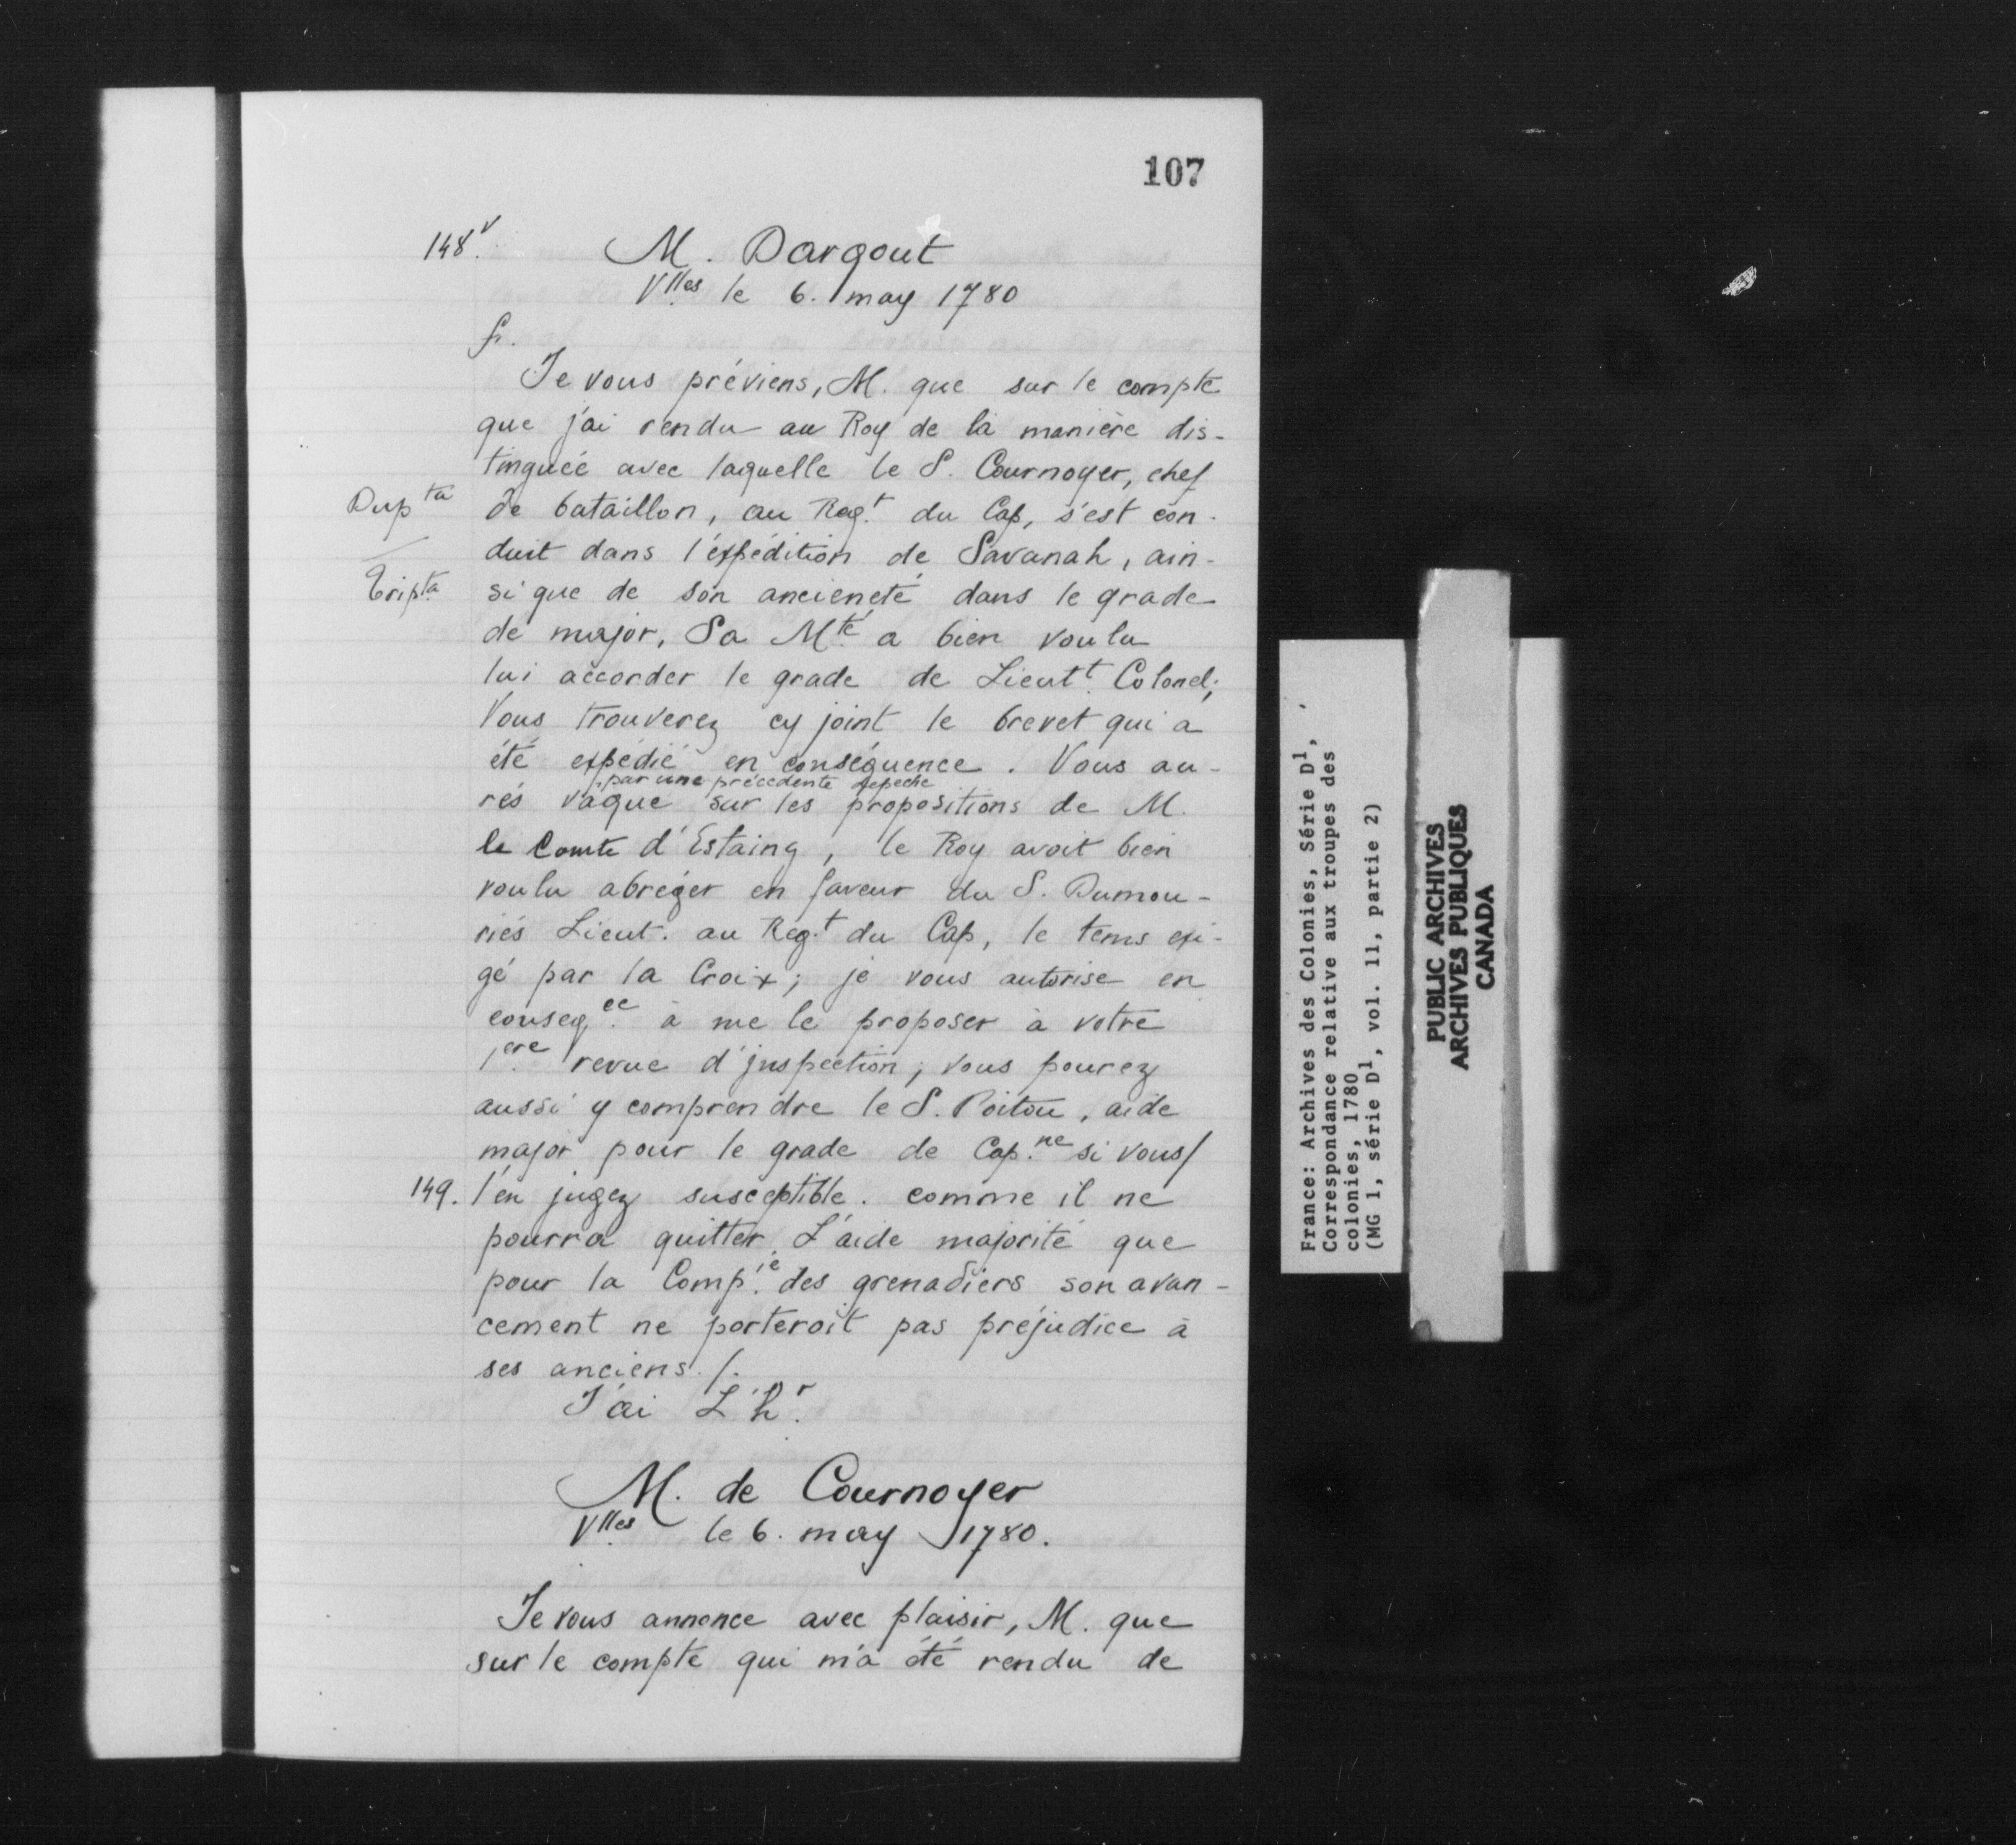 107
148v.
M. Dargout
Vlles le 6. may 1780
fr.
Je vous préviens, M. que sur le compte
que j'ai rendu au Roy de la manière dis-
tinguée avec laquelle le S. Cournoyer, chef
Dupta de bataillon, au Regt. du Cap, s'est con-
duit dans l'expédition de Savanah, ain-
Tripta. si que de son ancieneté dans le grade
de major, Sa Mté. a bien voulu
lui accorder le grade de Lieutt. Colonel;
Vous trouverez cy joint le brevet qui a
été expédié en conséquence. Vous au-
par une précédente depeche
rés vu que sur les propositions de M.
le Comte d'Estaing, le Roy avoit bien
voulu abréger en faveur du S. Dumou-
riés Lieut. au Regt. du Cap, le tems exi-
gé par la Croix; je vous autorise en
conseqce. à me le proposer à votre
1ere. revue d'jnspection; vous pourez
aussi y comprendre le S. Poitou, aide
major pour le grade de Capne. si vous/
149. l'en jugez susceptible. comme il ne
pourra quitter L'aide majorité que
pour la Compie. des grenadiers son avan-
cement ne porteroit pas préjudice à
ses anciens./.
J'ai L'hr.
M. de Cournoyer
Vlles le 6. may 1780.
Je vous annonce avec plaisir, M. que
sur le compte qui m'a été rendu de
France: Archives des Colonies, Série D1,
Correspondance relative aux troupes des
colonies, 1780
(MG 1, série D1, vol. 11, partie 2)
PUBLIC ARCHIVES
ARCHIVES PUBLIQUES
CANADA